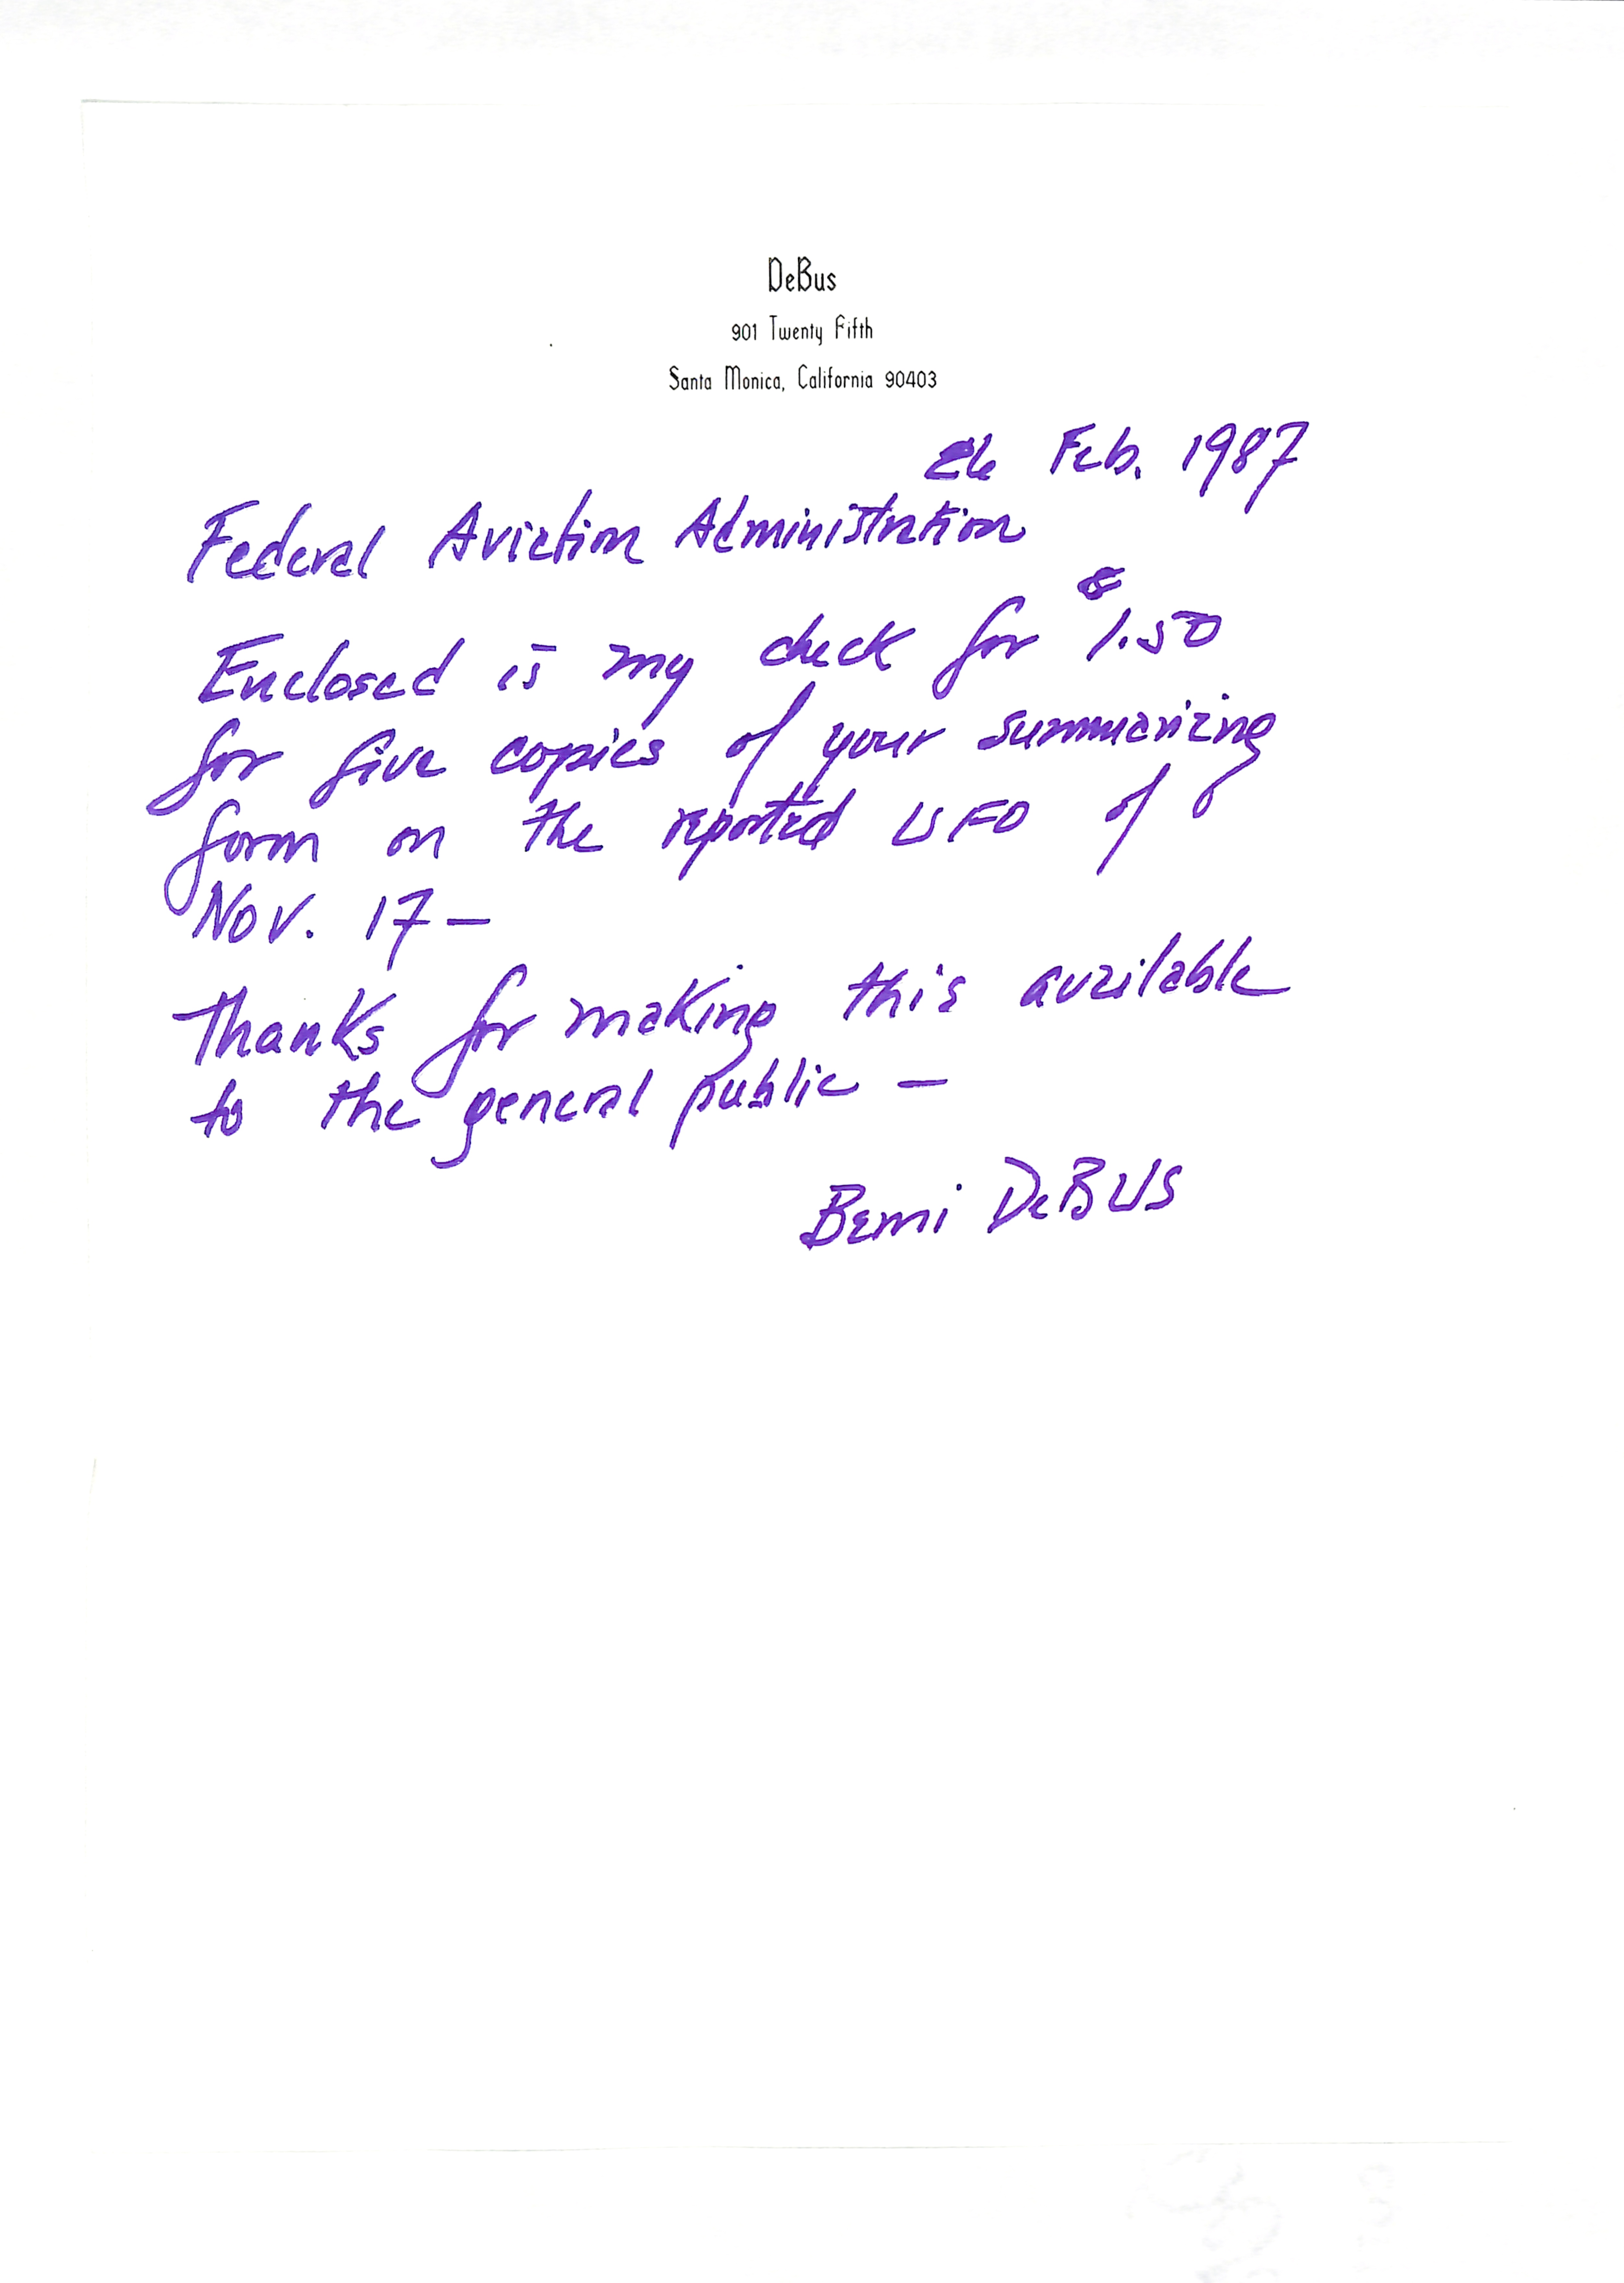 DeBus
901 Twenty Fifth
Santa Monica, California 90403
26 Feb. 1987
Federal Aviation Administration
Enclosed is my check for $1.50
for five copies of your summarizing
form on the reported UFO of
Nov. 17 —
Thanks for making this available
to the general public —
DeBUS